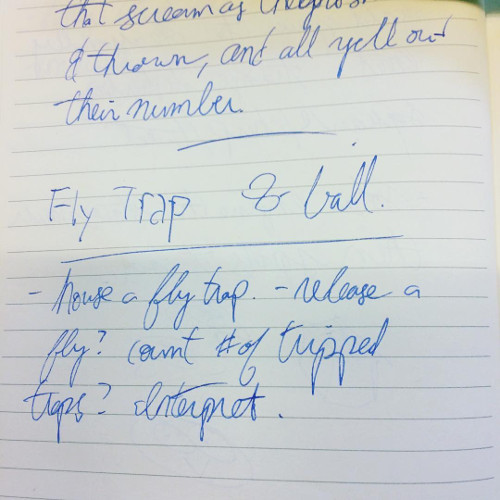 that scream as they
& thrown, and all yell out
their number.
Fly Trap & ball.
- house a fly trap. - release a
fly? count # of tripped
traps? interpret.